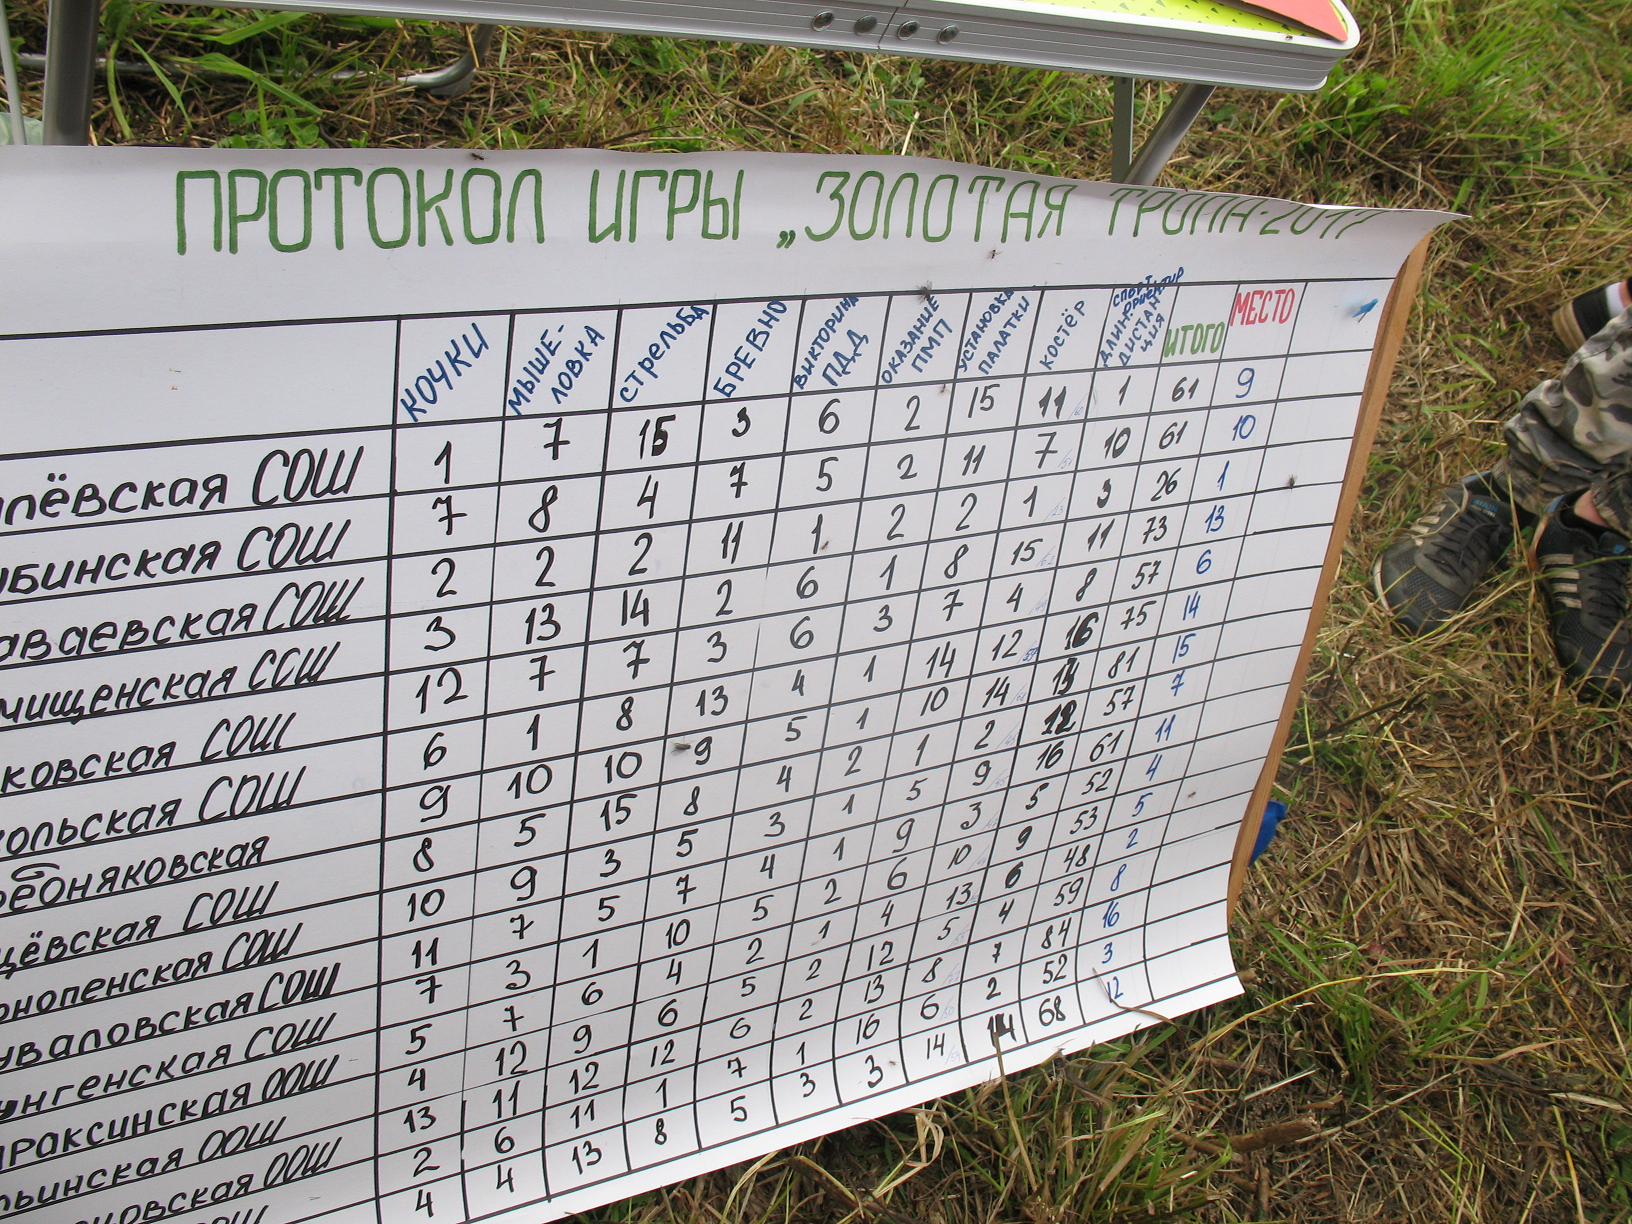 ПРОТОКОЛ ИГРЫ „ЗОЛОТАЯ ТРОПА-2017
КОЧКИ МЫШЕ-ЛОВКА СТРЕЛЬБА БРЕВНО ВИКТОРИНА ПДД ОКАЗАНИЕ ПМП УСТАНОВКА ПАЛАТКИ КОСТЁР СПОРТ ОРИЕНТИР ДЛИН. ДИСТАНЦИЯ ИТОГО МЕСТО
лёвская СОШ 1 7 15 3 6 2 15 11 1 61 9
бинская СОШ 7 8 4 7 5 2 11 7 10 61 10
аваевская СОШ 2 2 2 11 1 2 2 1 3 26 1
чищенская СОШ 3 13 14 2 6 1 8 15 11 73 13
ковская СОШ 12 7 7 3 6 3 7 4 8 57 6
кольская СОШ 6 1 8 13 4 1 14 12 16 75 14
ребоняковская 9 10 10 9 5 1 10 14 13 81 15
щёвская СОШ 8 5 15 8 4 2 1 2 12 57 7
онопенская СОШ 10 9 3 5 3 1 5 9 16 61 11
уваловская СОШ 11 7 5 7 4 1 9 3 5 52 4
нгенская СОШ 7 3 1 10 5 2 6 10 9 53 5
раксинская ООШ 5 7 6 4 2 1 4 13 6 48 2
ьинская ООШ 4 12 9 6 5 2 12 5 4 59 8
новская ООШ 13 11 12 12 6 2 13 8 7 84 16
СОШ 2 6 11 1 7 1 16 6 2 52 3
4 4 13 8 5 3 3 14 14 68 12